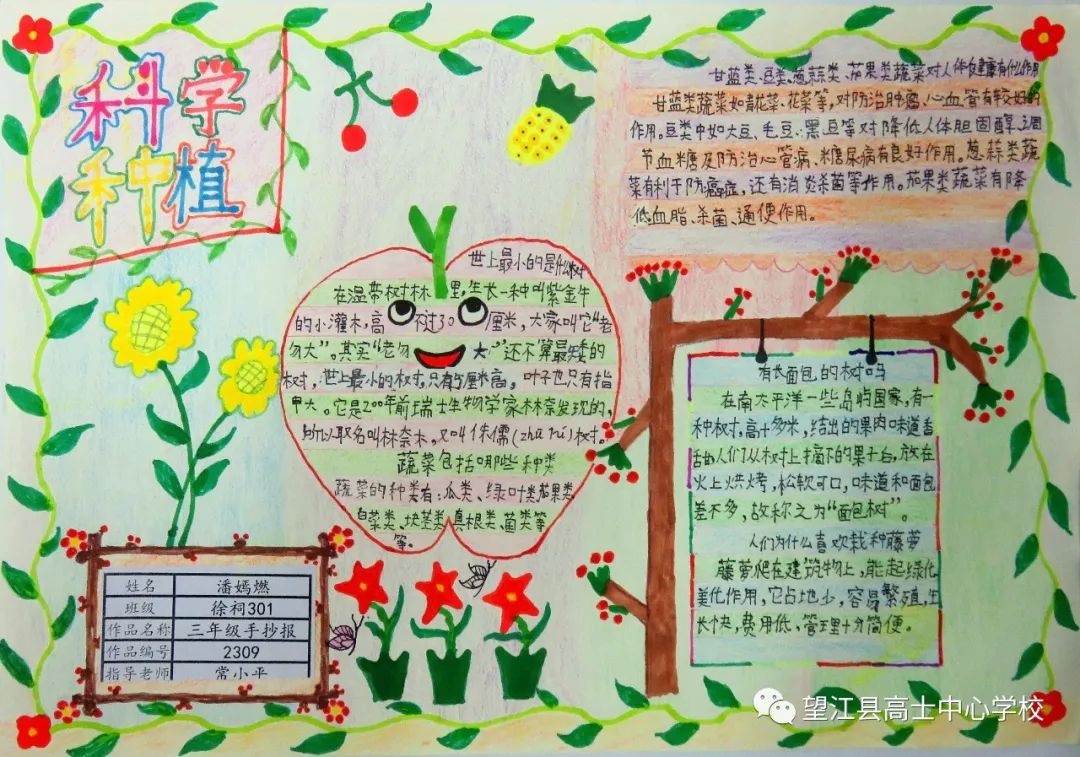 科学
种植
甘蓝类、豆类、葱蒜类、茄果类蔬菜对人体健康有什么作用
甘蓝类蔬菜如青花菜、花菜等，对防治肿瘤、心血管有较好的
作用。豆类中如大豆、毛豆、黑豆等对降低人体胆固醇、调
节血糖及防治心管病、糖尿病有良好作用。葱蒜类蔬
菜有利于防癌症，还有消炎杀菌等作用。茄果类蔬菜有降
低血脂、杀菌、通便作用。
世上最小的是什么树
在温带树林里，生长一种叫紫金牛
的小灌木，高不过30厘米，大家叫它“老
勿大”。其实“老勿大”还不算最矮的
树，世上最小的树，只有5厘米高，叶子也只有指
甲大。它是200年前瑞士生物学家林奈发现的，
所以取名叫林奈木。又叫侏儒(zhū rú)树。
蔬菜包括哪些种类
蔬菜的种类有：瓜类、绿叶类茄果类
白菜类、块茎类、真根类、菌类等
等。
有长面包的树吗
在南太平洋一些岛屿国家，有一
种树，高十多米，结出的果肉味道香
甜，人们从树上摘下的果子后，放在
火上烘烤，松软可口，味道和面包
差不多，故称之为“面包树”。
人们为什么喜欢栽种藤萝
藤萝爬在建筑物上，能起绿化
美化作用，它占地少，容易繁殖，生
长快，费用低、管理十分简便。
姓名 潘嫣燃
班级 徐祠301
作品名称 三年级手抄报
作品编号 2309
指导老师 常小平
望江县高士中心学校